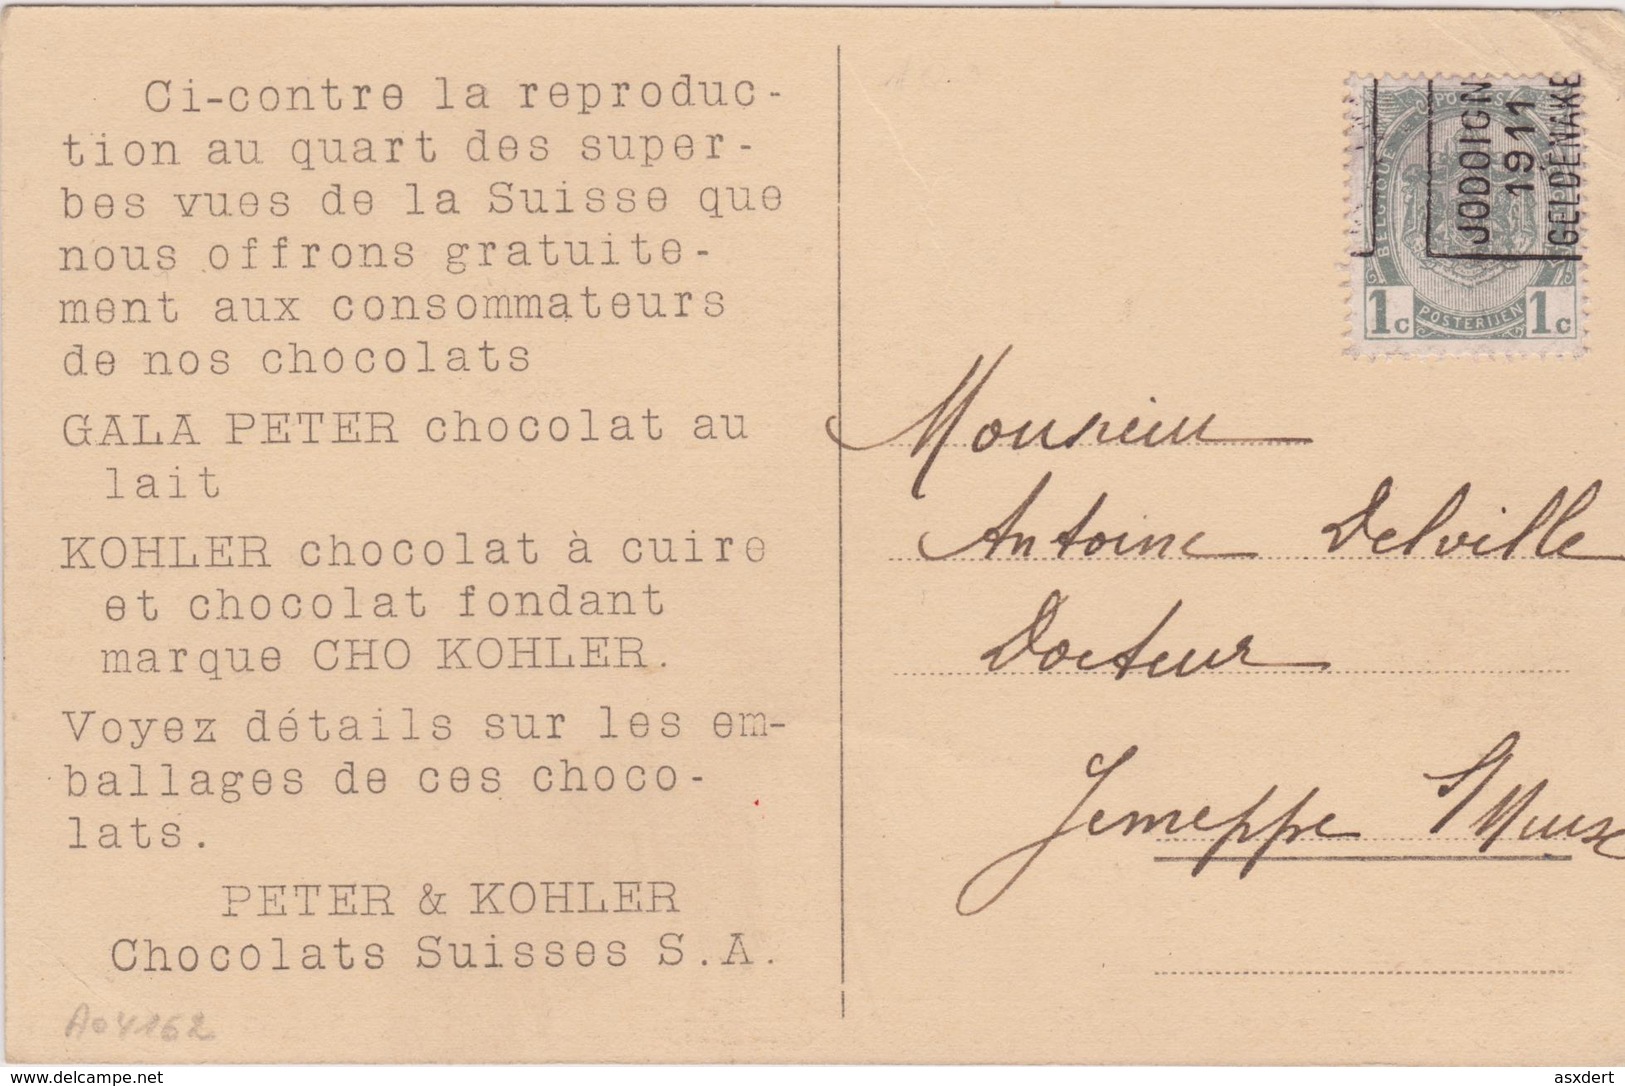 Ci-contre la reproduc-
tion au quart des super-
bes vues de la Suisse que
nous offrons gratuite-
ment aux consommateurs
de nos chocolats
GALA PETER chocolat au
lait
KOHLER chocolat à cuire
et chocolat fondant
marque CHO KOHLER.
Voyez détails sur les em-
ballages de ces choco-
lats.
PETER & KOHLER
Chocolats Suisses S.A.
A04162
JODOIGN
1911
GELDENAKE
BELGIQUE
1c POSTERIJEN 1c
Monsieur
Antoine Delville
Docteur
Jemeppe s/Meuse
www.delcampe.net
asxdert